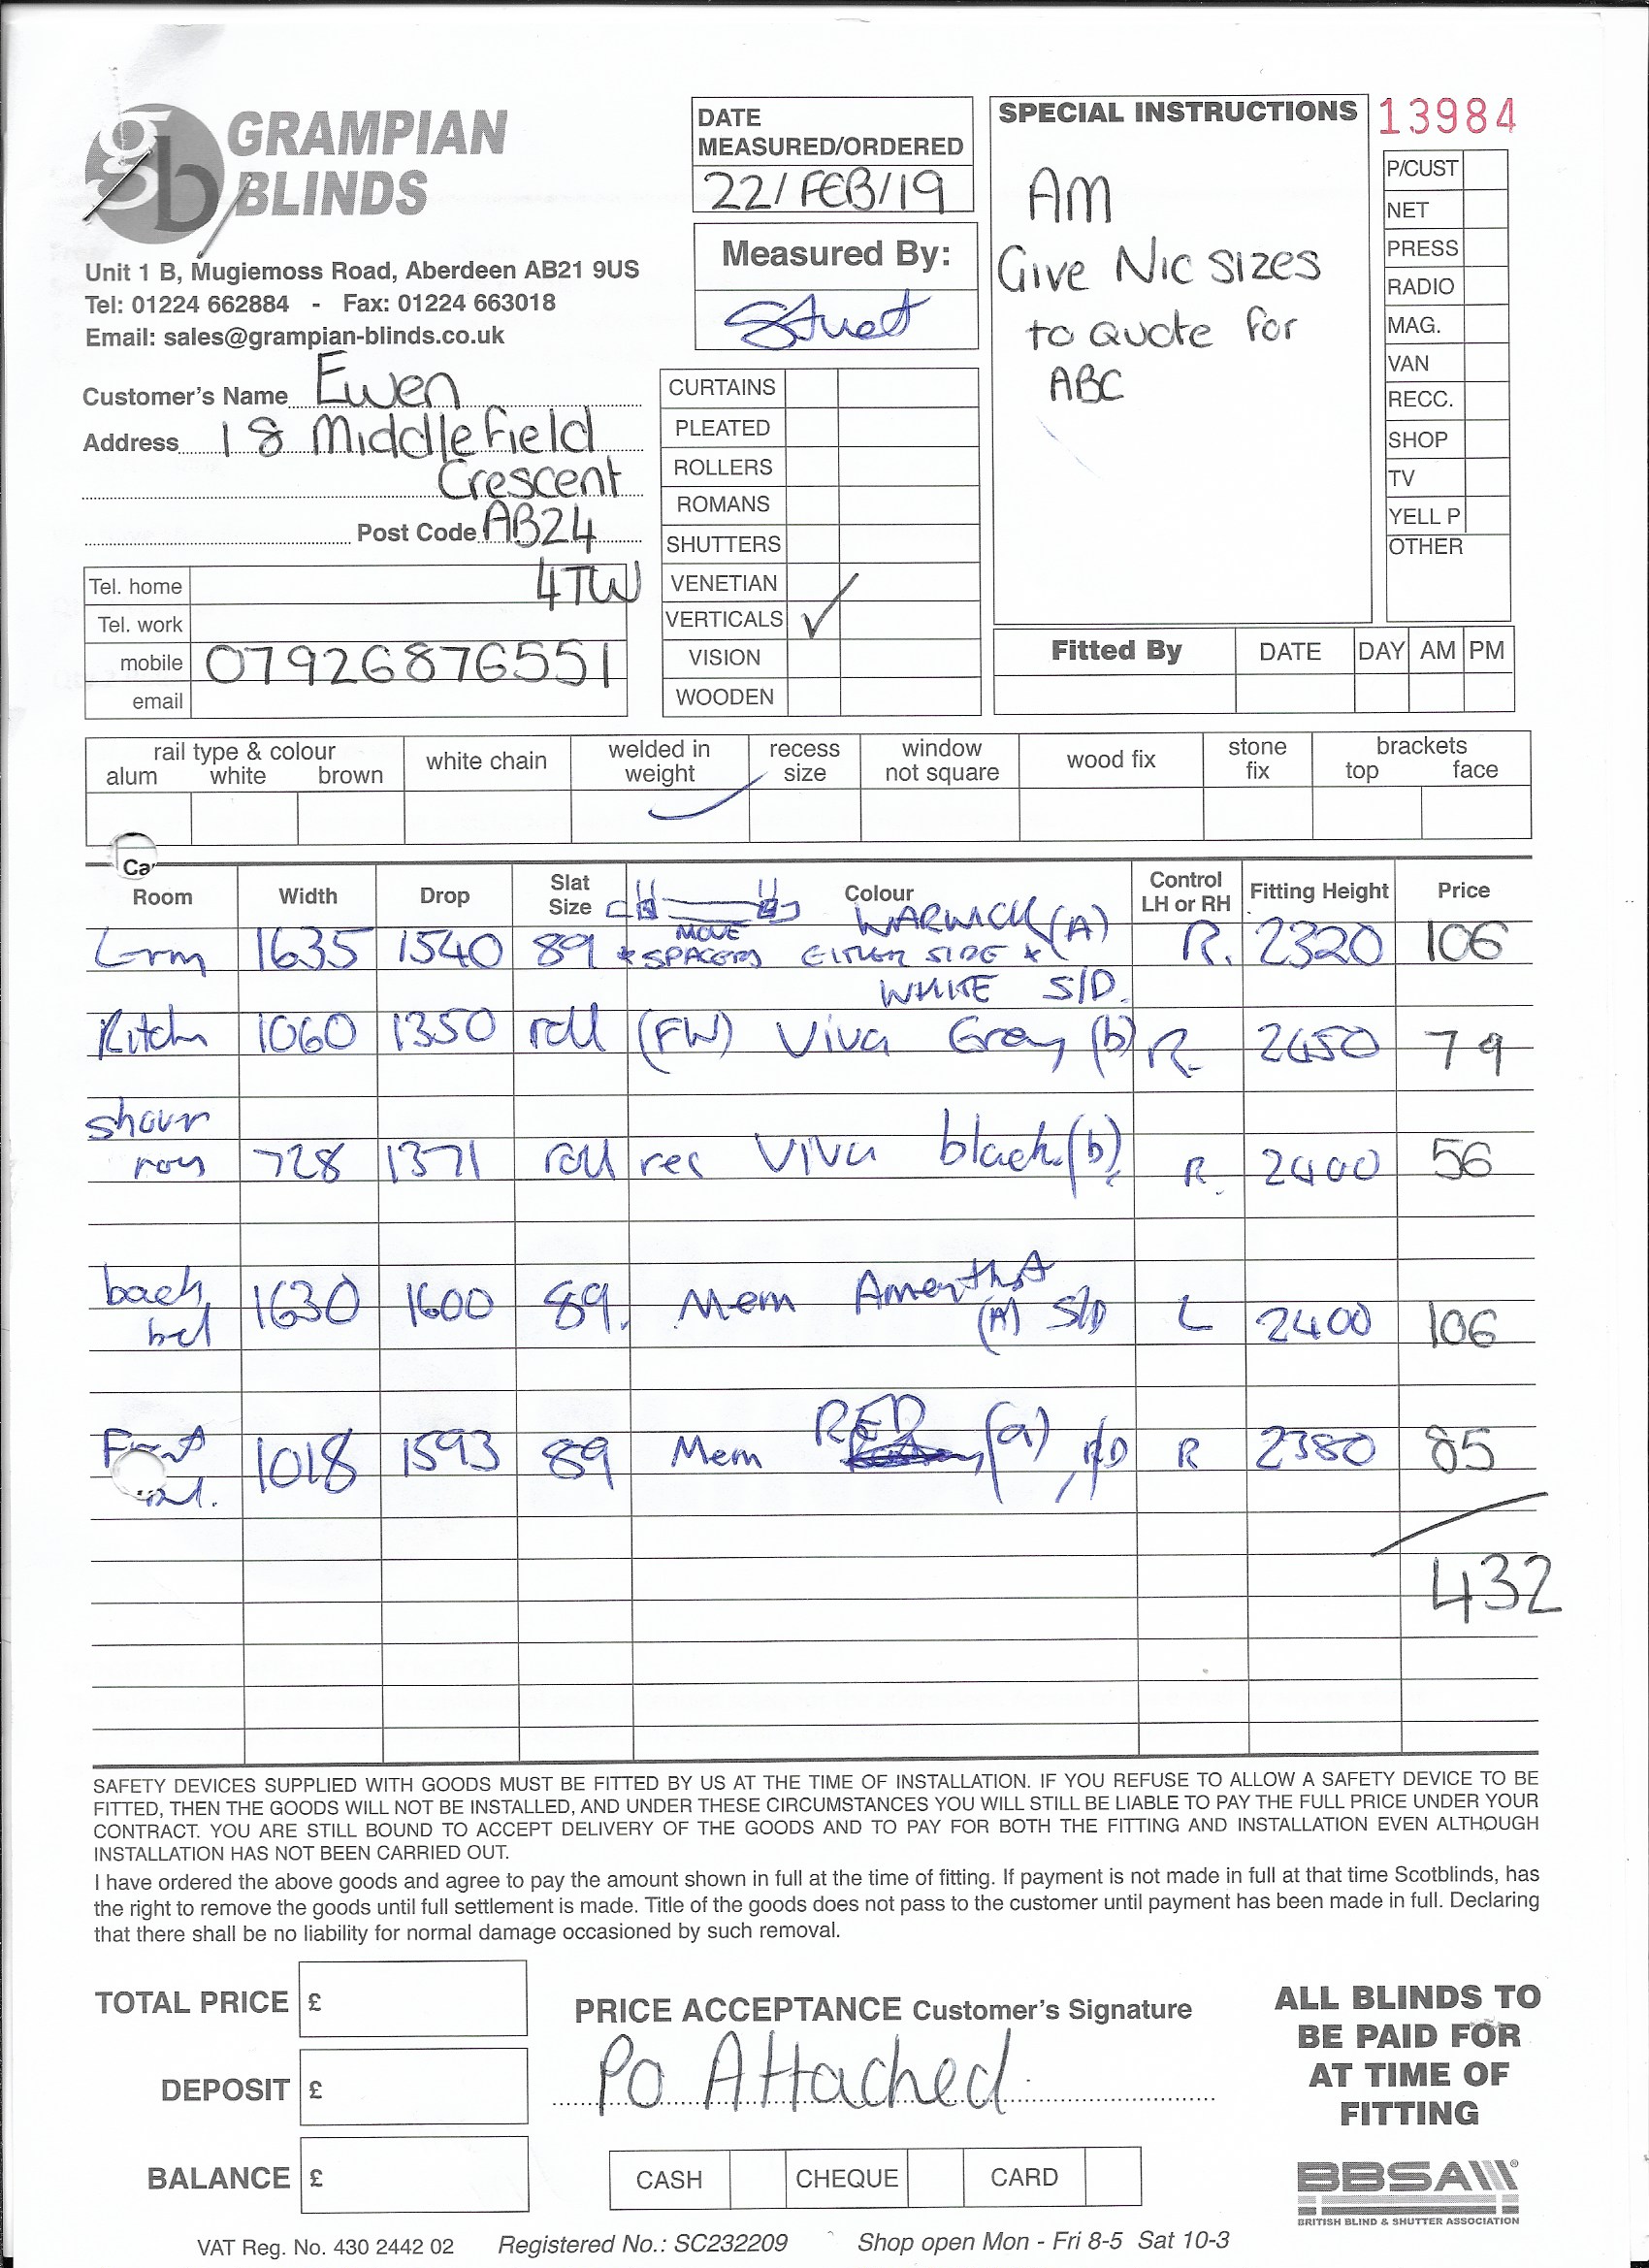 GRAMPIAN
BLINDS
Unit 1 B, Mugiemoss Road, Aberdeen AB21 9US
Tel: 01224 662884 - Fax: 01224 663018
Email: sales@grampian-blinds.co.uk
Customer's Name Ewen
Address 18 Middlefield
Crescent
Post Code AB24
4TW
Tel. home
Tel. work
mobile 07926876551
email
DATE
MEASURED/ORDERED
22/FEB/19
Measured By:
CURTAINS
PLEATED
ROLLERS
ROMANS
SHUTTERS
VENETIAN
VERTICALS ✓
VISION
WOODEN
SPECIAL INSTRUCTIONS
AM
Give Nic sizes
to Quote for
ABC
13984
P/CUST
NET
PRESS
RADIO
MAG.
VAN
RECC.
SHOP
TV
YELL P
OTHER
Fitted By DATE DAY AM PM
rail type & colour
alum white brown
white chain
welded in
weight
recess
size
window
not square
wood fix
stone
fix
brackets
top face
Room Width Drop Slat Size Colour Control LH or RH Fitting Height Price
Lrm 1635 1540 89 WARWICK (A) R. 2320 106
MOVE
* SPACERS EITHER SIDE *
WHITE S/D.
Kitchn 1060 1350 roll (FW) Viva Grey (b) R 2450 79
showr
728 1371 roll rec Viva black (b) R. 2400 56
back
bed 1630 1600 89. Mem (A) S/D L 2400 106
Front 1018 1593 89 Mem RED (a) R 2380 85
432
SAFETY DEVICES SUPPLIED WITH GOODS MUST BE FITTED BY US AT THE TIME OF INSTALLATION. IF YOU REFUSE TO ALLOW A SAFETY DEVICE TO BE
FITTED, THEN THE GOODS WILL NOT BE INSTALLED, AND UNDER THESE CIRCUMSTANCES YOU WILL STILL BE LIABLE TO PAY THE FULL PRICE UNDER YOUR
CONTRACT. YOU ARE STILL BOUND TO ACCEPT DELIVERY OF THE GOODS AND TO PAY FOR BOTH THE FITTING AND INSTALLATION EVEN ALTHOUGH
INSTALLATION HAS NOT BEEN CARRIED OUT.
I have ordered the above goods and agree to pay the amount shown in full at the time of fitting. If payment is not made in full at that time Scotblinds, has
the right to remove the goods until full settlement is made. Title of the goods does not pass to the customer until payment has been made in full. Declaring
that there shall be no liability for normal damage occasioned by such removal.
TOTAL PRICE £
DEPOSIT £
BALANCE £
PRICE ACCEPTANCE Customer's Signature
PO Attached
CASH CHEQUE CARD
ALL BLINDS TO
BE PAID FOR
AT TIME OF
FITTING
BBSA
BRITISH BLIND & SHUTTER ASSOCIATION
VAT Reg. No. 430 2442 02 Registered No.: SC232209 Shop open Mon - Fri 8-5 Sat 10-3